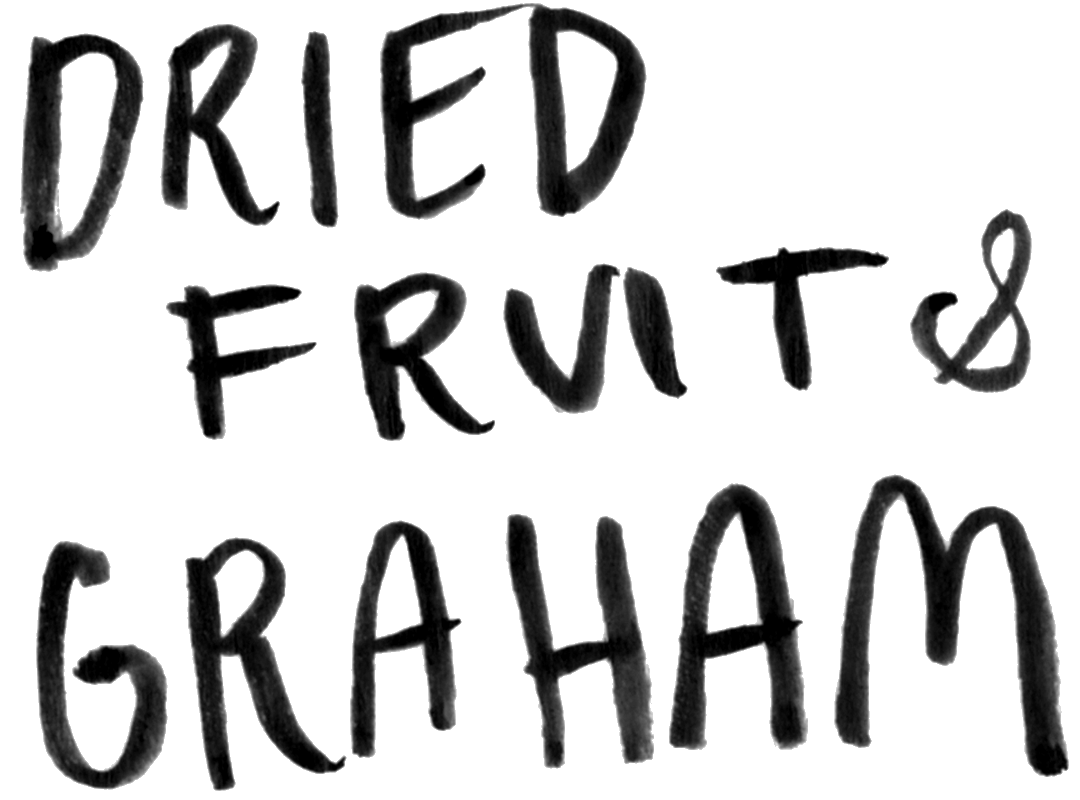 DRIED
FRUIT &
GRAHAM